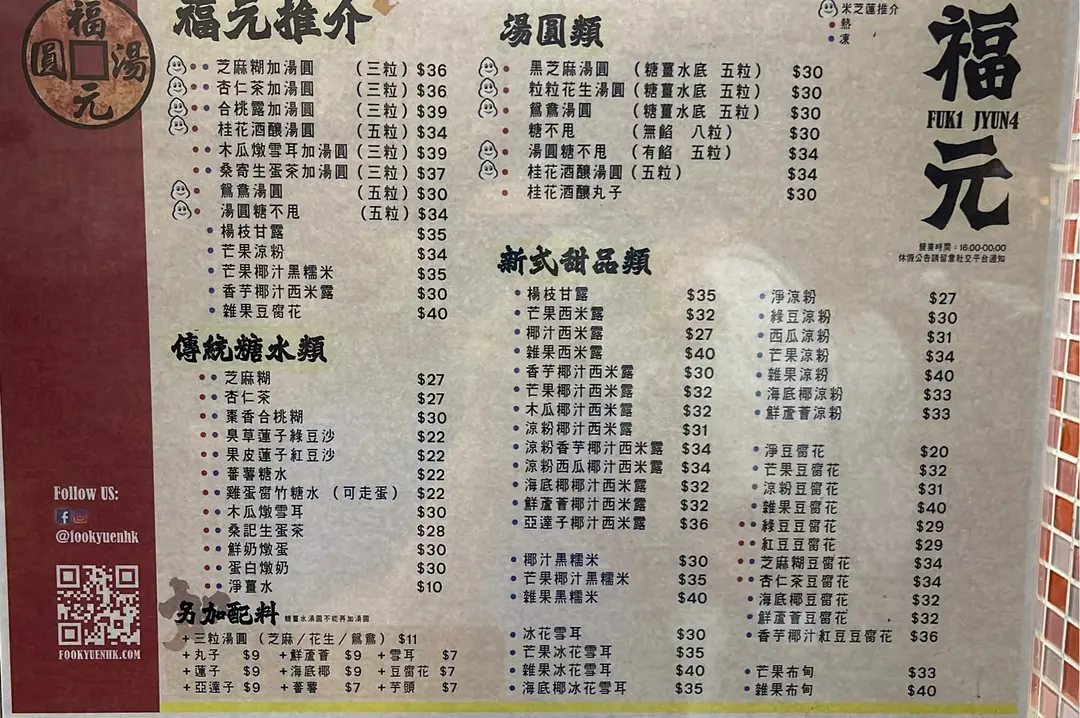 福
圓 湯
元
福元推介
芝麻糊加湯圓 （三粒）$36
杏仁茶加湯圓 （三粒）$36
合桃露加湯圓 （三粒）$39
桂花酒釀湯圓 （五粒）$34
木瓜燉雪耳加湯圓（三粒）$39
桑寄生蛋茶加湯圓（三粒）$37
鴛鴦湯圓 （五粒）$30
湯圓糖不甩 （五粒）$34
楊枝甘露 $35
芒果涼粉 $34
芒果椰汁黑糯米 $35
香芋椰汁西米露 $30
雜果豆腐花 $40
傳統糖水類
芝麻糊 $27
杏仁茶 $27
棗香合桃糊 $30
臭草蓮子綠豆沙 $22
果皮蓮子紅豆沙 $22
蕃薯糖水 $22
雞蛋腐竹糖水（可走蛋） $22
木瓜燉雪耳 $30
桑記生蛋茶 $28
鮮奶燉蛋 $30
蛋白燉奶 $30
淨薑水 $10
另加配料 糖薑水湯圓不能再加湯圓
+三粒湯圓（芝麻/花生/鴛鴦）$11
+丸子 $9 +鮮蘆薈 $9 +雪耳 $7
+蓮子 $9 +海底椰 $9 +豆腐花 $7
+亞達子 $9 +蕃薯 $7 +芋頭 $7
湯圓類
黑芝麻湯圓 （糖薑水底 五粒） $30
粒粒花生湯圓（糖薑水底 五粒） $30
鴛鴦湯圓 （糖薑水底 五粒） $30
糖不甩 （無餡 八粒） $30
湯圓糖不甩 （有餡 五粒） $34
桂花酒釀湯圓（五粒） $34
桂花酒釀丸子 $30
新式甜品類
楊枝甘露 $35
芒果西米露 $32
椰汁西米露 $27
雜果西米露 $40
香芋椰汁西米露 $30
芒果椰汁西米露 $32
木瓜椰汁西米露 $32
涼粉椰汁西米露 $31
涼粉香芋椰汁西米露 $34
涼粉西瓜椰汁西米露 $34
海底椰椰汁西米露 $32
鮮蘆薈椰汁西米露 $32
亞達子椰汁西米露 $36
椰汁黑糯米 $30
芒果椰汁黑糯米 $35
雜果黑糯米 $40
冰花雪耳 $30
芒果冰花雪耳 $35
雜果冰花雪耳 $40
海底椰冰花雪耳 $35
淨涼粉 $27
綠豆涼粉 $30
西瓜涼粉 $31
芒果涼粉 $34
雜果涼粉 $40
海底椰涼粉 $33
鮮蘆薈涼粉 $33
淨豆腐花 $20
芒果豆腐花 $32
涼粉豆腐花 $31
雜果豆腐花 $40
綠豆豆腐花 $29
紅豆豆腐花 $29
芝麻糊豆腐花 $34
杏仁茶豆腐花 $34
海底椰豆腐花 $32
鮮蘆薈豆腐花 $32
香芋椰汁紅豆豆腐花 $36
芒果布甸 $33
雜果布甸 $40
米芝蓮推介
熱
凍
福
FUK1 JYUN4
元
營業時間：16:00-00:00
休假公告請留意社交平台通知
Follow US:
@fookyuenhk
FOOKYUENHK.COM